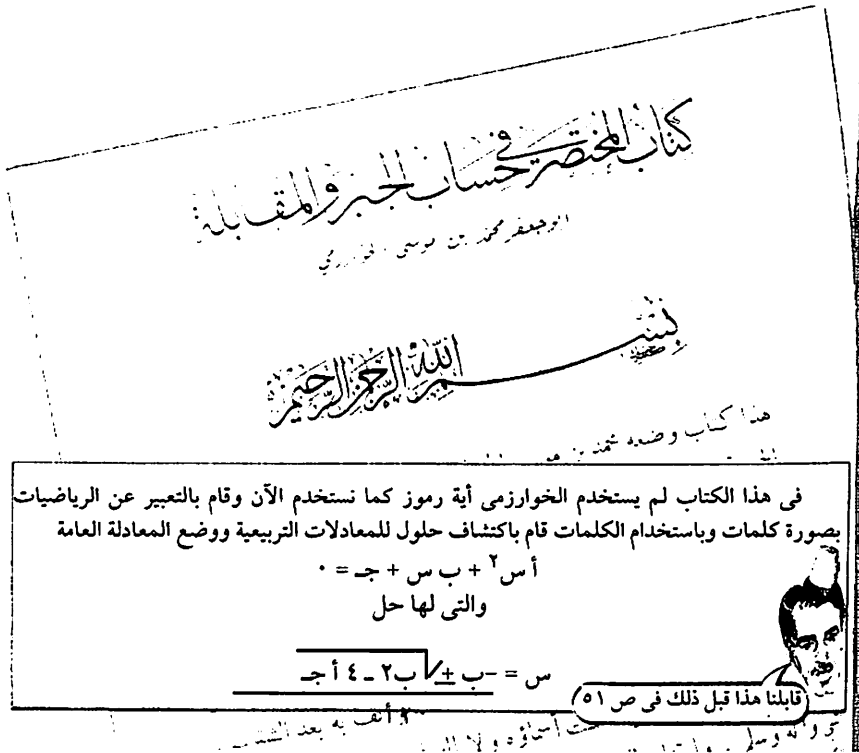 كتاب المختصر في حساب الجبر والمقابلة
ابو جعفر محمد بن موسى الخوارزمي
بسم الله الرحمن الرحيم
هذا كتاب وضعه محمد بن
فى هذا الكتاب لم يستخدم الخوارزمى أية رموز كما نستخدم الآن وقام بالتعبير عن الرياضيات
بصورة كلمات وباستخدام الكلمات قام باكتشاف حلول للمعادلات التربيعية ووضع المعادلة العامة
أ س٢ + ب س + جـ = ٠
والتى لها حل
س = -ب ± √ب٢ - ٤ أ جـ
٢ أ
قابلنا هذا قبل ذلك فى ص ٥١